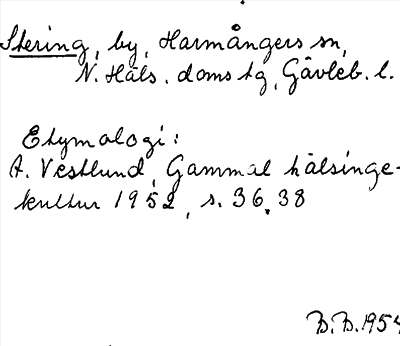 Stering, by, Harmångers sn,
N. Häls. doms tg, Gävleb. l.
Etymologi:
A. Vestlund, Gammal hälsinge-
kultur 1952, s. 36, 38
B.B. 1954